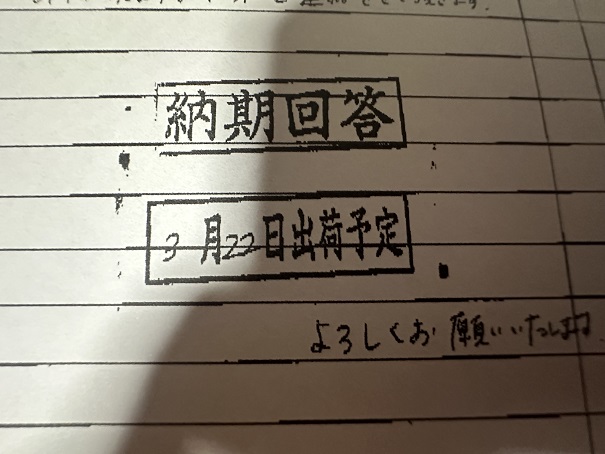 納期回答
3月22日出荷予定
よろしくお願いいたします